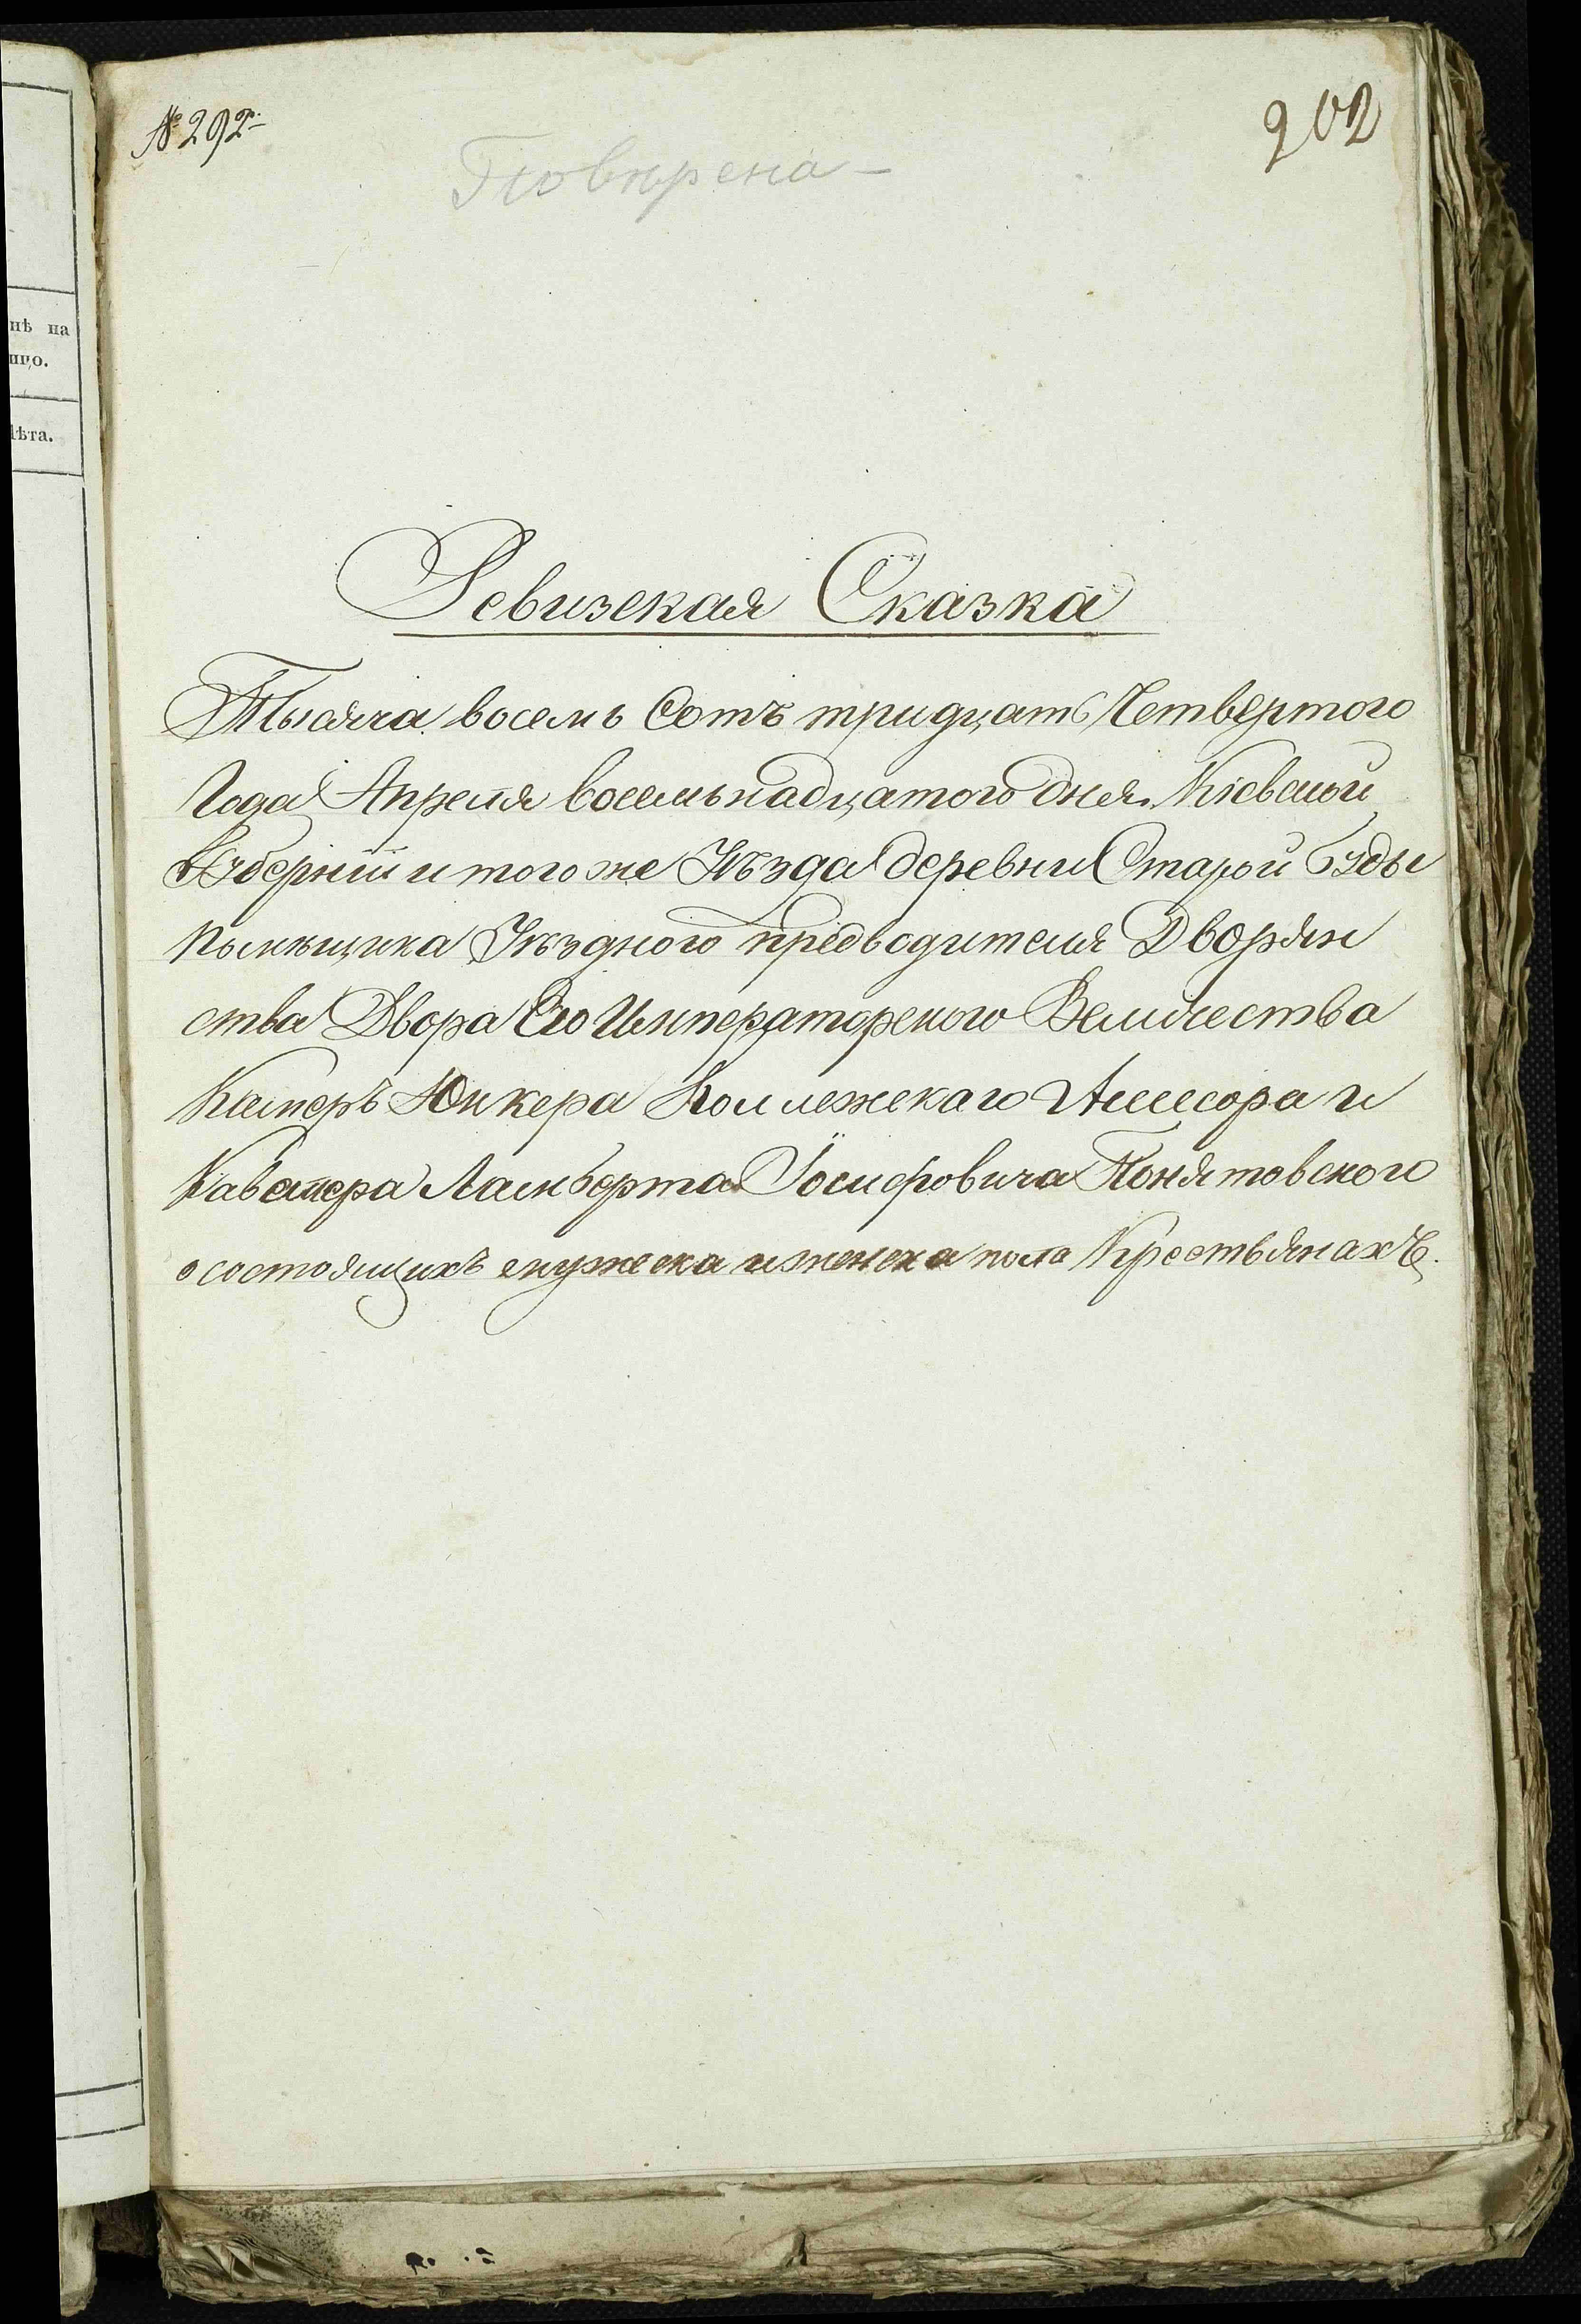 № 292.
902
Повѣрена
нѣ на
лицо.
Лѣта.
Ревизская Сказка
Тысяча восемь Сотъ тридцать Четвертого
Года Апреля восемьнадцатого дня Кіевской
Губерніи и того же Уѣзда деревни Старой Буды
помѣщика Уѣздного предводителя Дворян
ства Двора Его Императорского Величества
Камеръ Юнкера Коллежскаго Ассесора и
Кавалера Ламберта Іосифовича Понятовского
о состоящихъ мужеска и женска пола Крестьянахъ.